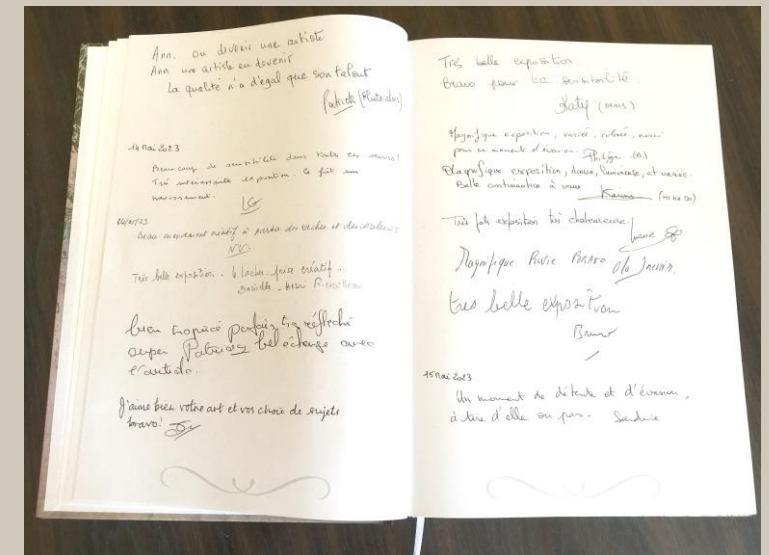 Ann. ou devenir une artiste
Ann une artiste en devenir
La qualité n'a d'égal que son talent
Patrick
14 mai 2023
Beaucoup de sensibilité dans toutes ces œuvres!
Très intéressante exposition. Ce fût un
ravissement.
LG
Beau mouvement créatif à partir des taches et des couleurs
Très belle exposition. créatif...
bien inspiré parfois très réfléchi
super bel échange avec
l'artiste.
J'aime bien votre art et vos choix de sujets
bravo!
Très belle exposition.
Bravo pour la sensibilité.
Katy
Magnifique exposition, variée, colorée, merci
pour ce moment d'évasion. Philippe
Magnifique exposition, douce, lumineuse, et variée.
Belle continuation à vous Karine
Très jolie exposition très chaleureuse.
Magnifique Bravo
très belle exposition
Bruno
15 mai 2023
Un moment de détente et d'évasion,
à tire d'elle ou pas. Sandrine